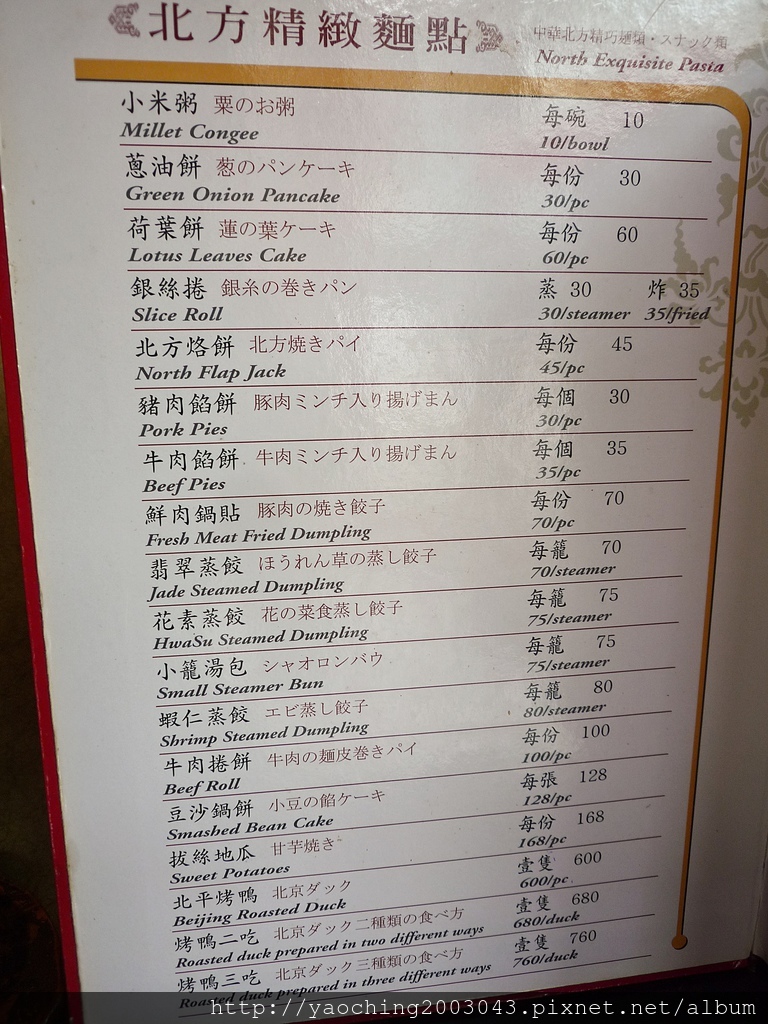 北方精緻麵點
中華北方精巧麵類・スナック類
North Exquisite Pasta
小米粥 粟のお粥 每碗 10
Millet Congee 10/bowl
蔥油餅 葱のパンケーキ 每份 30
Green Onion Pancake 30/pc
荷葉餅 蓮の葉ケーキ 每份 60
Lotus Leaves Cake 60/pc
銀絲捲 銀糸の巻きパン 蒸 30 炸 35
Slice Roll 30/steamer 35/fried
北方烙餅 北方焼きパイ 每份 45
North Flap Jack 45/pc
豬肉餡餅 豚肉ミンチ入り揚げまん 每個 30
Pork Pies 30/pc
牛肉餡餅 牛肉ミンチ入り揚げまん 每個 35
Beef Pies 35/pc
鮮肉鍋貼 豚肉の焼き餃子 每份 70
Fresh Meat Fried Dumpling 70/pc
翡翠蒸餃 ほうれん草の蒸し餃子 每籠 70
Jade Steamed Dumpling 70/steamer
花素蒸餃 花の菜食蒸し餃子 每籠 75
HwaSu Steamed Dumpling 75/steamer
小籠湯包 シャオロンバウ 每籠 75
Small Steamer Bun 75/steamer
蝦仁蒸餃 エビ蒸し餃子 每籠 80
Shrimp Steamed Dumpling 80/steamer
牛肉捲餅 牛肉の麺皮巻きパイ 每份 100
Beef Roll 100/pc
豆沙鍋餅 小豆の餡ケーキ 每張 128
Smashed Bean Cake 128/pc
拔絲地瓜 甘芋焼き 每份 168
Sweet Potatoes 168/pc
北平烤鴨 北京ダック 壹隻 600
Beijing Roasted Duck 600/pc
烤鴨二吃 北京ダック二種類の食べ方 壹隻 680
Roasted duck prepared in two different ways 680/duck
烤鴨三吃 北京ダック三種類の食べ方 壹隻 760
Roasted duck prepared in three different ways 760/duck
http://yaoching2003043.pixnet.net/album